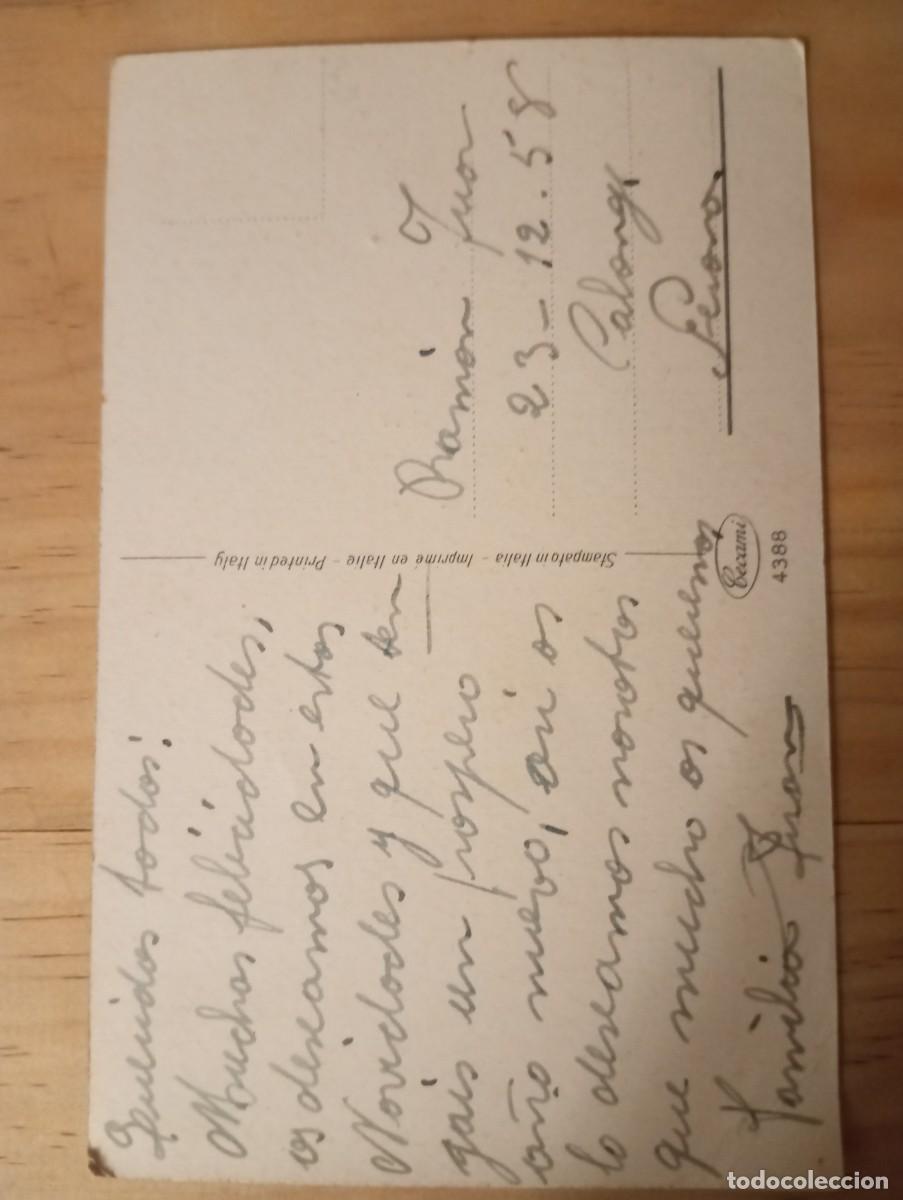 Queridos todos:
Muchas felicidades,
os deseamos en estas
Navidades y que ten
gais un prospero
año nuevo, asi os
lo deseamos nosotros
que mucho os queremos
Familia Juan
Stampato in Italia - Imprimé en Italie - Printed in Italy
Ramon Juan
23-12.58
Calonge
Gerona.
Cecami
4388
todocoleccion